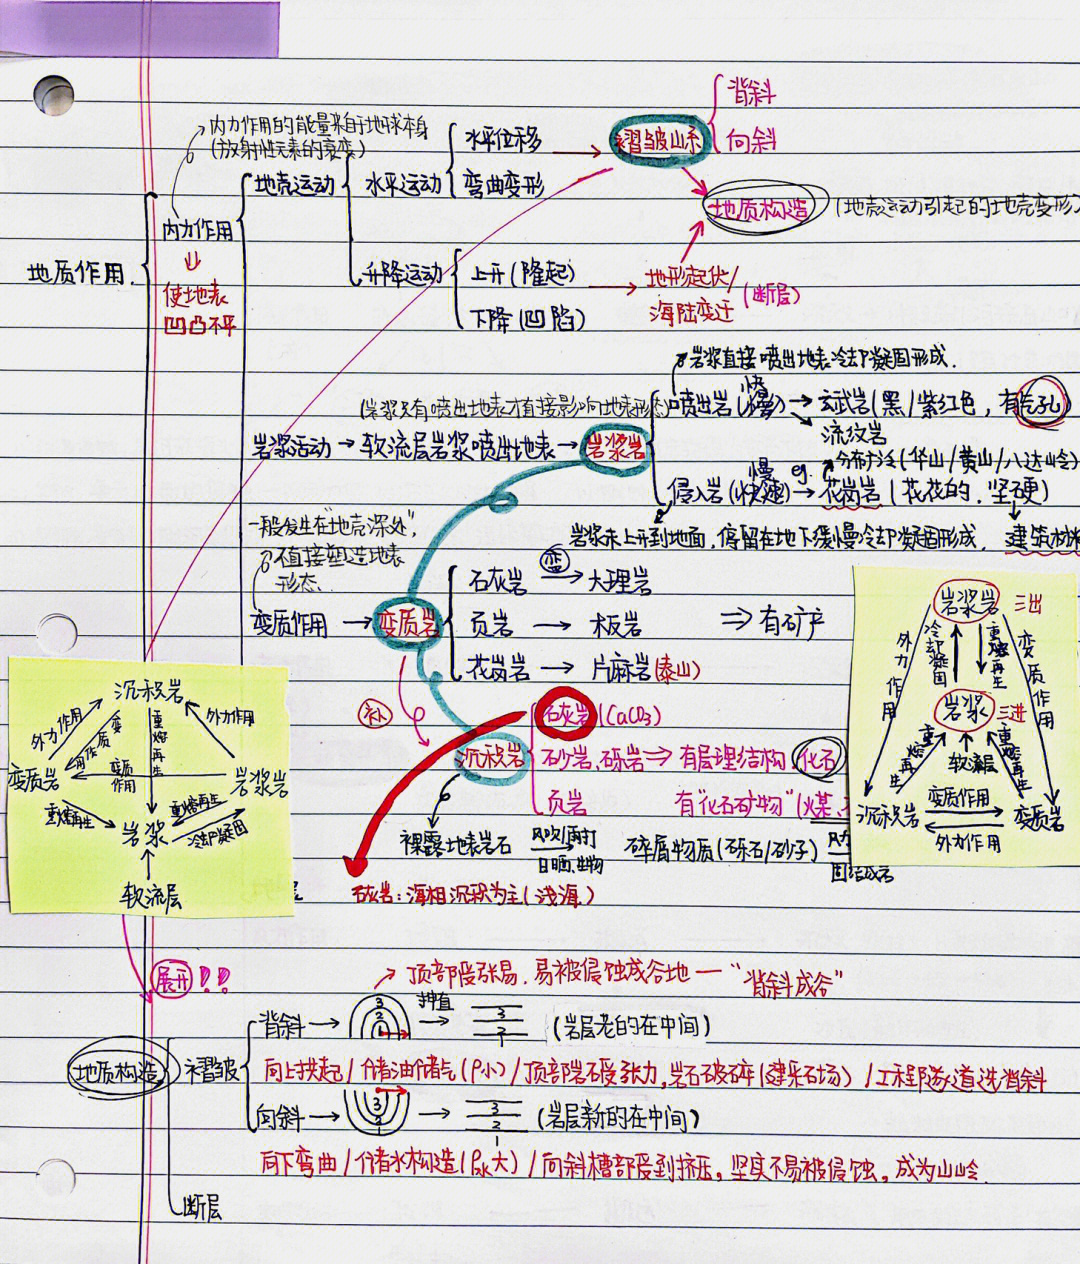 背斜
向斜
内力作用的能量来自于地球本身
(放射性元素的衰变)
水平位移
褶皱山系
地壳运动
水平运动
弯曲变形
地质构造
(地壳运动引起的地壳变形)
内力作用
地质作用
升降运动
上升(隆起)
地形起伏/
海陆变迁
(断层)
使地表
凹凸不平
下降(凹陷)
岩浆直接喷出地表冷却凝固形成.
(岩浆只有喷出地表才直接影响地表形态)
喷出岩
玄武岩(黑/紫红色,有气孔)
流纹岩
岩浆活动→软流层岩浆喷出地表→岩浆岩
慢 eg.
分布广泛(华山/黄山/八达岭)
侵入岩(快速)→花岗岩(花花的、坚硬)
岩浆未上升到地面,停留在地下缓慢冷却凝固形成.
建筑材料
一般发生在"地壳深处",
不直接塑造地表
形态.
变质作用→变质岩
石灰岩
变
大理岩
页岩→板岩
⇒有矿产
花岗岩→片麻岩(泰山)
补
石灰岩(CaCO₃)
沉积岩
石砂岩、砾岩⇒有层理结构
化石
页岩
有"化石矿物"(煤、
裸露地表岩石
风吹/雨打
日晒、生物
碎屑物质(砾石/砂子)
风力
固结成岩
石灰岩:海相沉积为主(浅海)
沉积岩
外力作用
变质作用
重熔再生
外力作用
变质岩
变质作用
岩浆岩
重熔再生
岩浆
重熔再生
冷却凝固
软流层
岩浆岩 三出
外力作用
冷却凝固
重熔再生
变质作用
岩浆 三进
重熔再生
软流层
重熔再生
沉积岩
变质作用
变质岩
外力作用
展开!!
顶部受张易,易被侵蚀成谷地—"背斜成谷"
地质构造
褶皱
背斜→
3
2
1
抻直
3
2
1
(岩层老的在中间)
向上拱起/储油储气(ρ小)/顶部岩石受张力,岩石破碎(建采石场)/工程隧道选背斜
向斜→
3
2
1
3
2
1
(岩层新的在中间)
向下弯曲/储水构造(ρ水大)/向斜槽部受到挤压,坚实不易被侵蚀,成为山岭.
断层